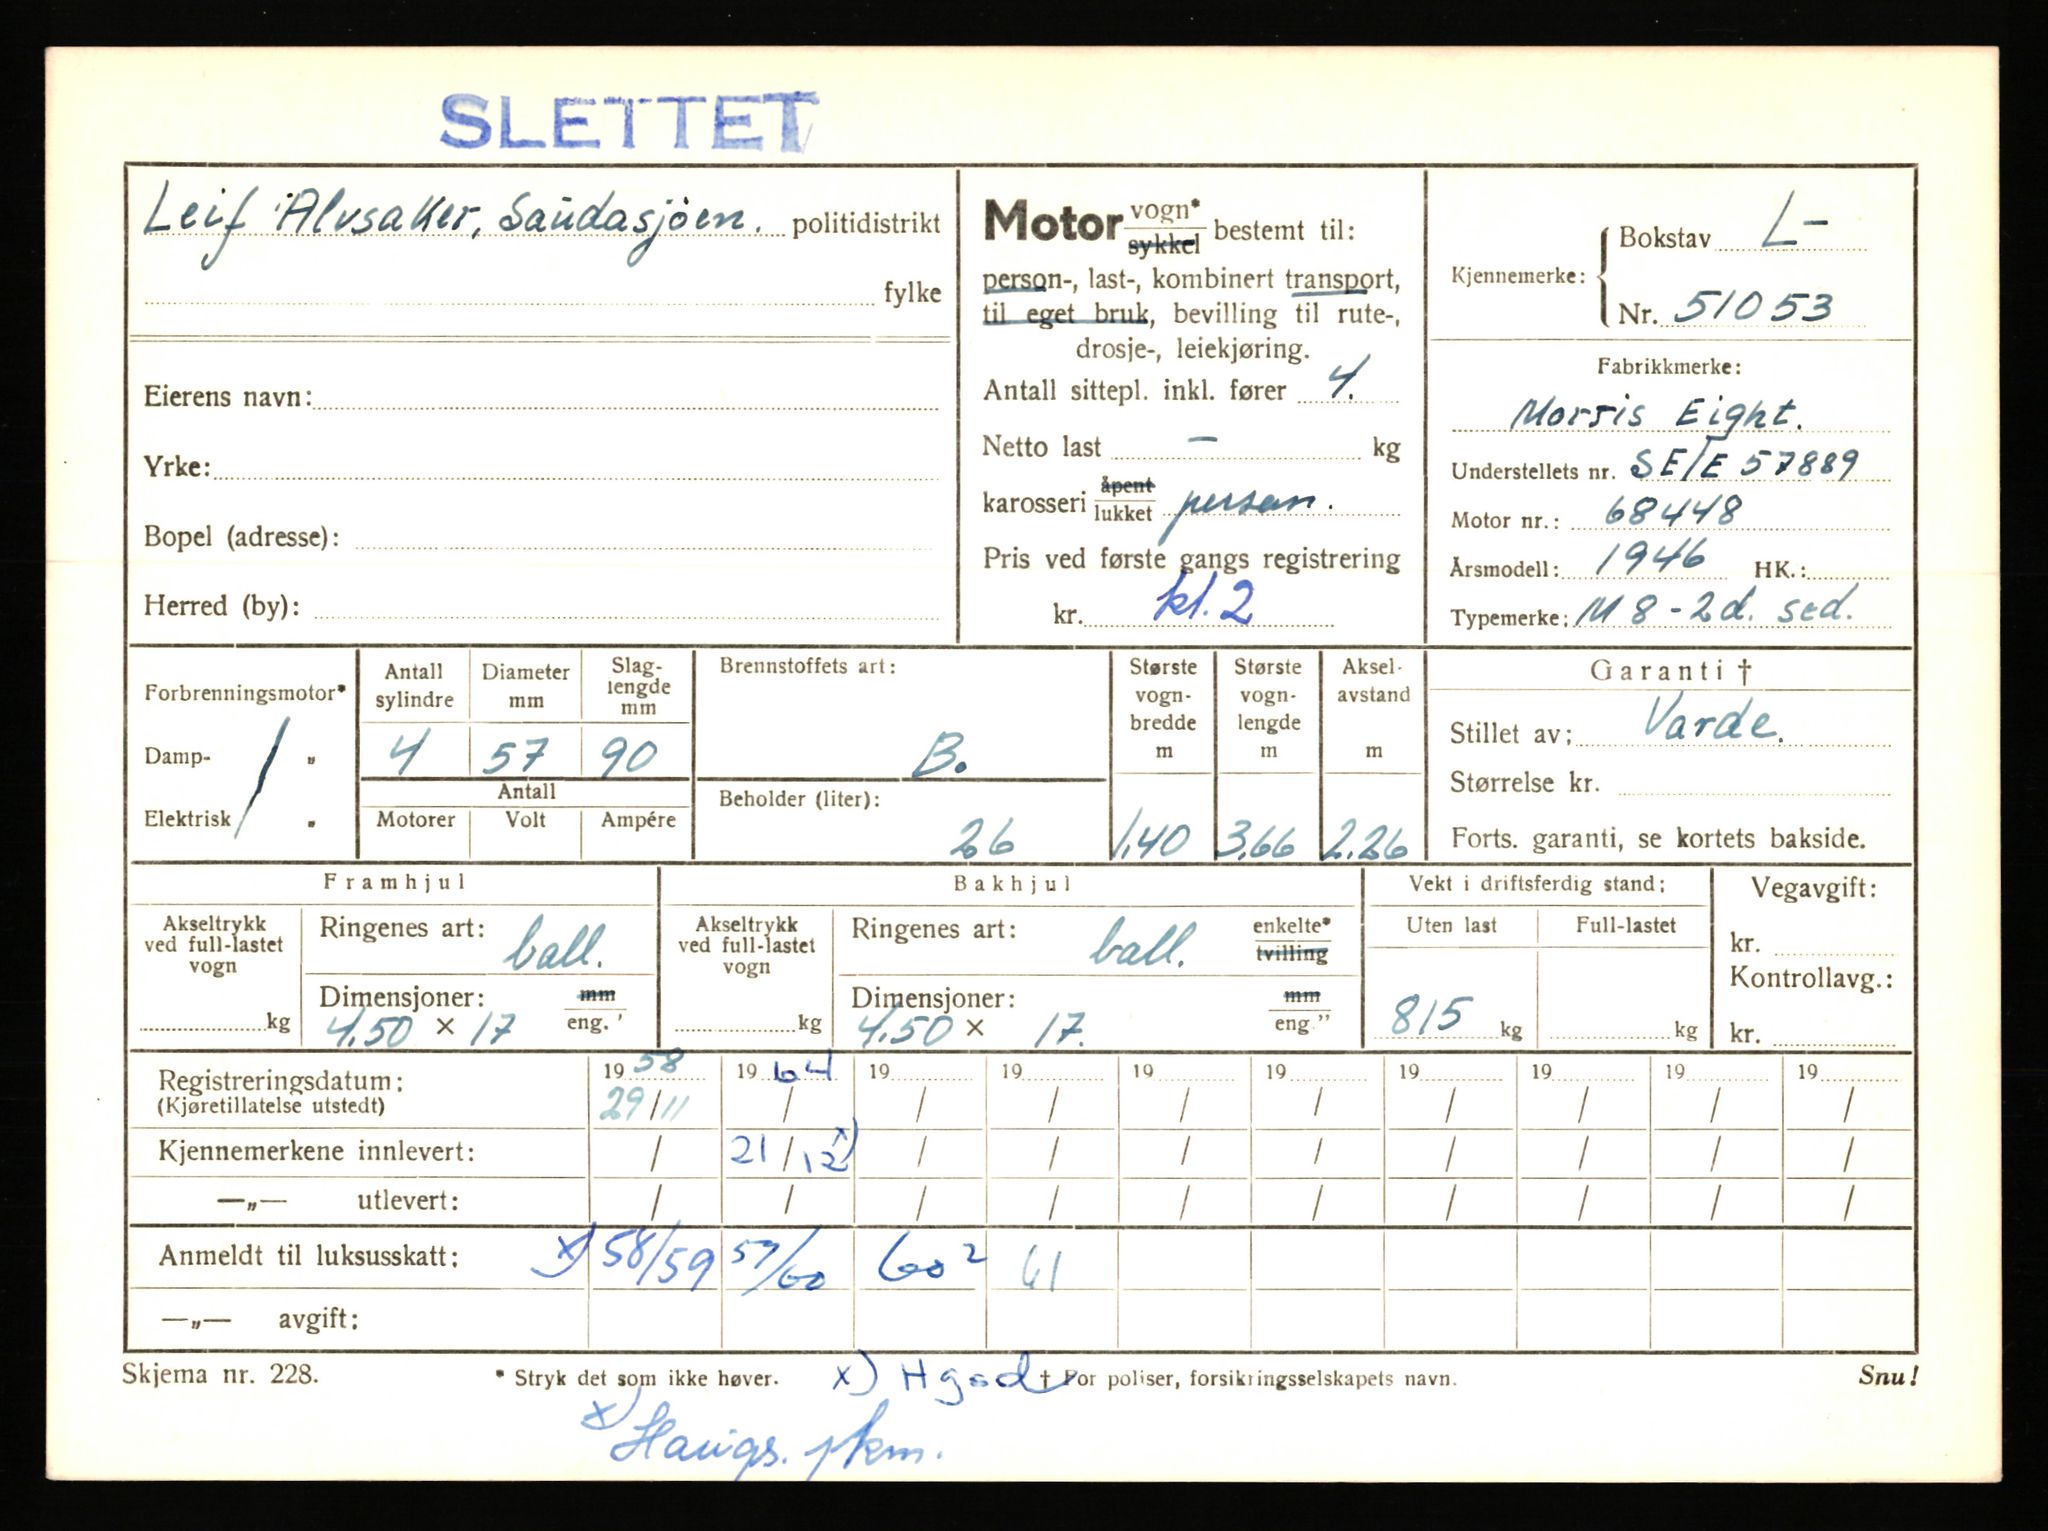 SLETTET
Leif Alvsaker, Saudasjöen. politidistrikt
fylke
Eierens navn:
Yrke:
Bopel (adresse):
Herred (by):
Motor vogn* sykkel bestemt til:
person-, last-, kombinert transport,
til eget bruk, bevilling til rute-,
drosje-, leiekjøring.
Antall sittepl. inkl. fører 4.
Netto last — kg
karosseri åpent lukket person.
Pris ved første gangs registrering
kr. kl. 2
Kjennemerke: Bokstav L-
Nr. 51053
Fabrikkmerke:
Morris Eight.
Understellets nr. SE/E 57889
Motor nr.: 68448
Årsmodell: 1946 HK.:
Typemerke: M 8 - 2d. sed.
Forbrenningsmotor*
Damp- „
Elektrisk „
Antall sylindre Diameter mm Slaglengde mm
4 57 90
Antall
Motorer Volt Ampére
Brennstoffets art:
B.
Beholder (liter):
26
Største vogn-bredde m Største vogn-lengde m Aksel-avstand m
1.40 3.66 2.26
Garanti †
Stillet av: Varde.
Størrelse kr.
Forts. garanti, se kortets bakside.
Framhjul
Akseltrykk ved full-lastet vogn
kg
Ringenes art: ball.
Dimensjoner: mm eng.'
4.50 × 17
Bakhjul
Akseltrykk ved full-lastet vogn
kg
Ringenes art: ball. enkelte* tvilling
Dimensjoner: mm eng."
4.50 × 17.
Vekt i driftsferdig stand:
Uten last Full-lastet
815 kg kg
Vegavgift:
kr.
Kontrollavg.:
kr.
Registreringsdatum: 1958 1964 19 19 19 19 19 19 19 19
(Kjøretillatelse utstedt) 29/11 / / / / / / / / /
Kjennemerkene innlevert: / 21/12 x) / / / / / / / /
—„— utlevert: / / / / / / / / / /
Anmeldt til luksusskatt: x) 58/59 59/60 60² 61
—„— avgift:
Skjema nr. 228. * Stryk det som ikke høver. x) Hgsd † For poliser, forsikringsselskapets navn. Snu!
x) Haugs. pkm.